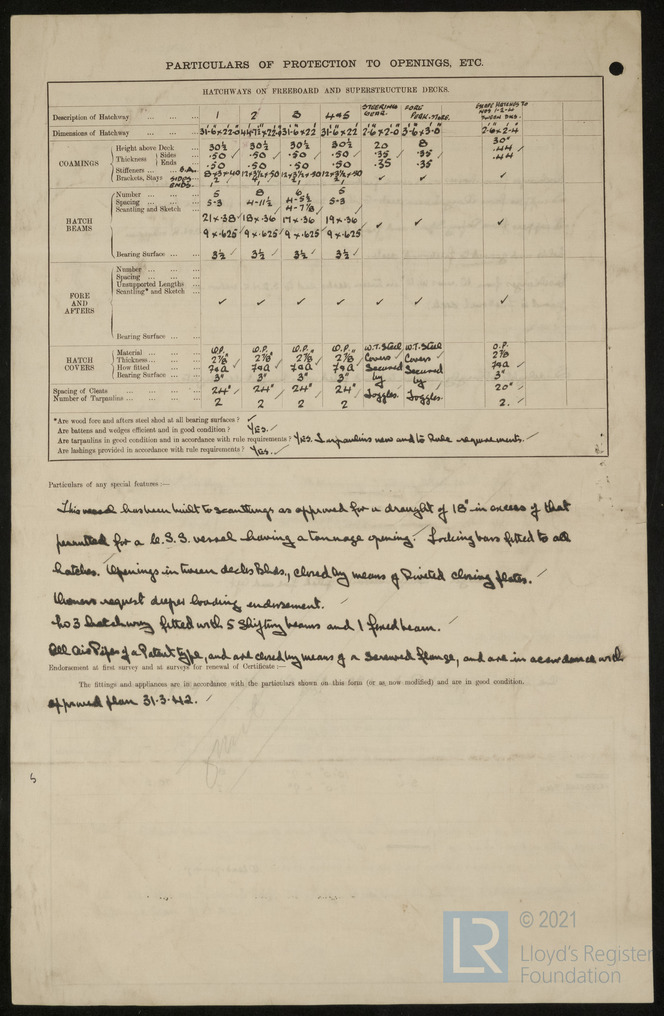 PARTICULARS OF PROTECTION TO OPENINGS, ETC.
HATCHWAYS ON FREEBOARD AND SUPERSTRUCTURE DECKS.
Description of Hatchway ... ... ... 1 2 3 4&5 STEERING GEAR. FORE PEAK. STORE. ESCAPE HATCHES TO NOS 1-2-4 TWEEN DKS.
Dimensions of Hatchway ... ... ... 31-6×22-0 44-7½×22-0 31-6×22 31-6×22 2-6×2-0 3-6×3-0 2-6×2-4
COAMINGS
Height above Deck ... 30½ 30½ 30½ 30½ 20 8 30"
Thickness Sides ... .50 .50 .50 .50 .35 .35 .44
Ends ... .50 .50 .50 .50 .35 .35 .44
Stiffeners ... B.A.
Brackets, Stays SIDES ENDS.
HATCH BEAMS
Number ... ... ... 5 8 6 5
Spacing ... ... ... 5-3 4-11½ 4-5½ 5-3
Scantling and Sketch ... 4-7⅞
21×.38 18×.36 17×.36 19×.36
9×.625 9×.625 9×.625 9×.625
Bearing Surface ... ... 3½ 3½ 3½ 3½
FORE AND AFTERS
Number ... ... ...
Spacing ... ... ...
Unsupported Lengths ...
Scantling* and Sketch ...
Bearing Surface ... ...
HATCH COVERS
Material ... ... ... O.P. O.P. O.P. O.P. W.T. Steel W.T. Steel O.P.
Thickness ... ... ... 2⅞" 2⅞" 2⅞" 2⅞ Covers Covers 2⅞
How fitted ... ... F&A F&A F&A F&A Secured Secured F&A
Bearing Surface ... 3" 3" 3" 3" by by 3"
Spacing of Cleats ... ... ... ... 24" 24" 24" 24" Toggles. Toggles. 20"
Number of Tarpaulins ... ... ... 2 2 2 2 2.
*Are wood fore and afters steel shod at all bearing surfaces?
Are battens and wedges efficient and in good condition? Yes.
Are tarpaulins in good condition and in accordance with rule requirements? Yes. Tarpaulins new and to Rule requirements.
Are lashings provided in accordance with rule requirements? Yes.
Particulars of any special features:—
This vessel has been built to scantlings as approved for a draught of 18" in excess of that
permitted for a C.S.S. vessel having a tonnage opening. Locking bars fitted to all
hatches. Openings in tween decks Blhds., closed by means of Riveted closing plates.
Owners request deeper loading endorsement.
No 3 hatchway fitted with 5 Shifting beams and 1 fixed beam.
All Air Pipes of a Patent type, and are closed by means of a Screwed Flange, and are in accordance with
Endorsement at first survey and at surveys for renewal of Certificate:—
The fittings and appliances are in accordance with the particulars shown on this form (or as now modified) and are in good condition.
approved plan 31.3.42.
LR
© 2021
Lloyd's Register
Foundation